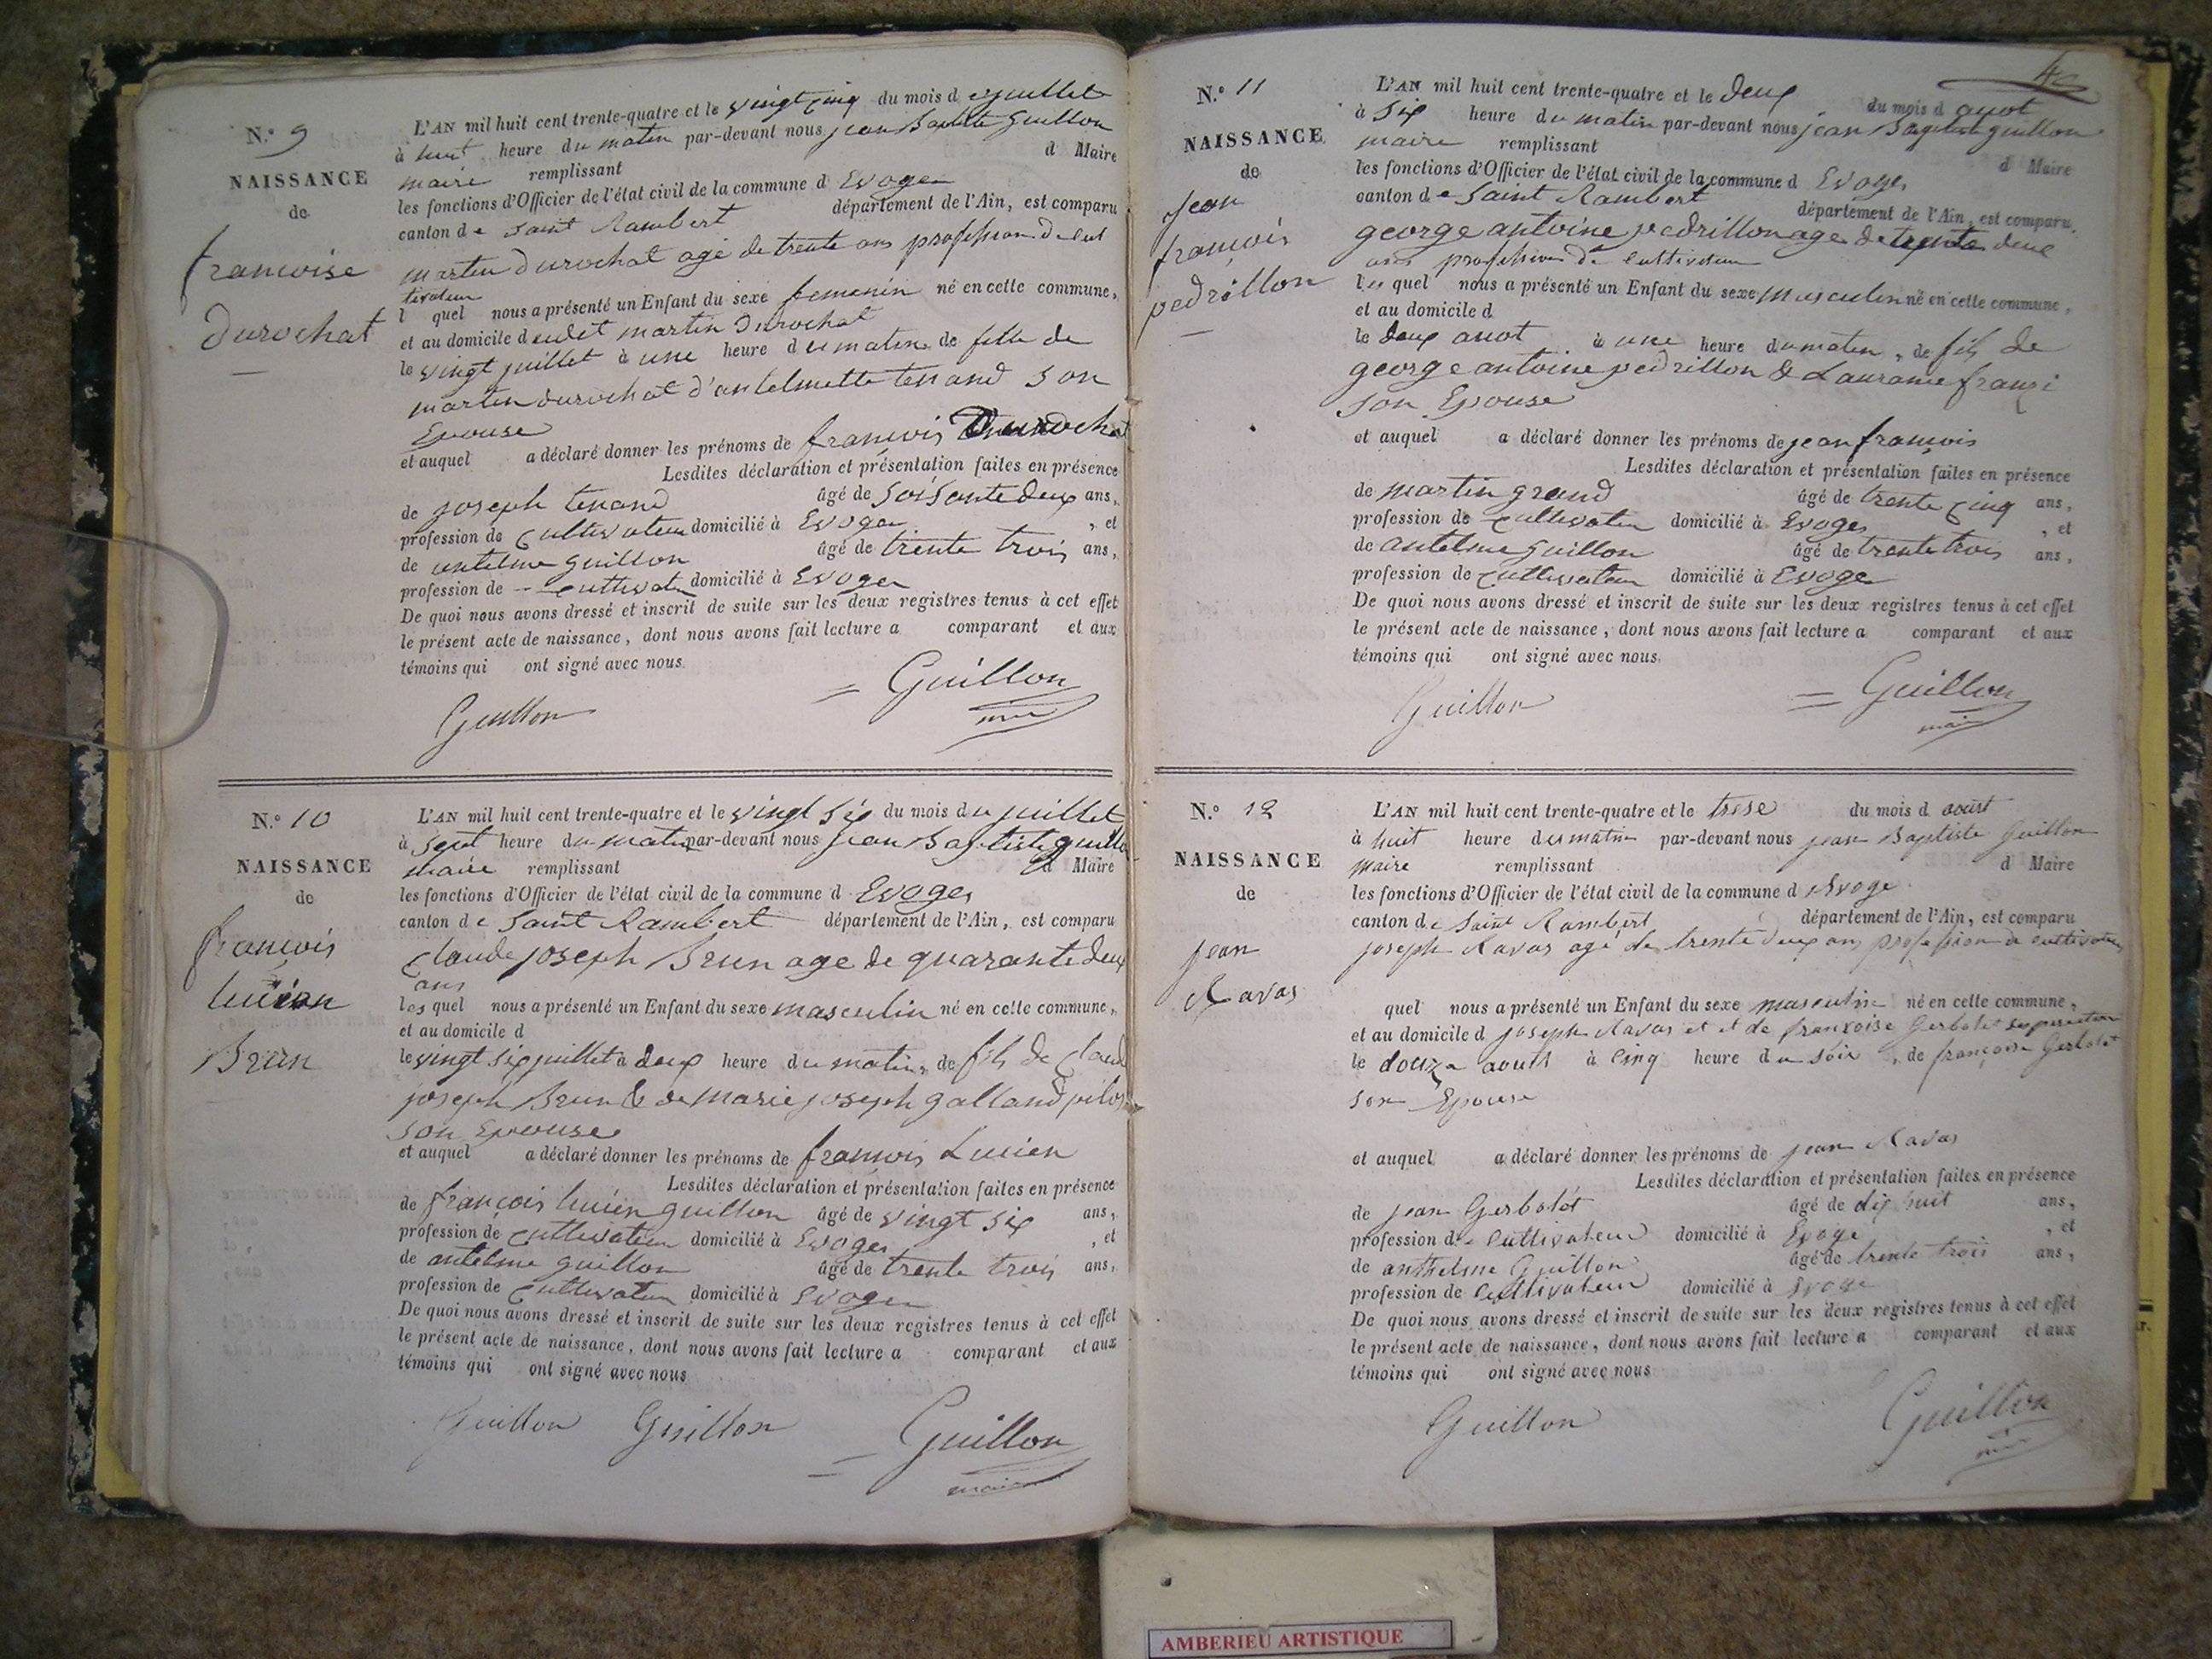 N.º 9
NAISSANCE
de
francoise
durochat
L'AN mil huit cent trente-quatre et le vingt cinq du mois d juillet
à huit heure du matin par-devant nous jean Baptiste Guillon
maire remplissant d Maire
les fonctions d'Officier de l'état civil de la commune d Evoges
canton de saint Rambert département de l'Ain, est comparu
martin durochat agé de trente ans profession de cul
tivateur
l quel nous a présenté un Enfant du sexe femenin né en cette commune,
et au domicile dudit martin durochat
le vingt juillet à une heure du matin de fille de
martin durochat d'antelmette tenand son
Epouse
et auquel a déclaré donner les prénoms de françois Durochat
Lesdites déclaration et présentation faites en présence
de joseph tenand âgé de soisante deux ans,
profession de cultivateur domicilié à Evoges, et
de antelme guillon âgé de trente trois ans,
profession de cultivateur domicilié à Evoges
De quoi nous avons dressé et inscrit de suite sur les deux registres tenus à cet effet
le présent acte de naissance, dont nous avons fait lecture a comparant et aux
témoins qui ont signé avec nous.
Guillon Guillon
N.º 10
NAISSANCE
de
françois
lucien
Brun
L'AN mil huit cent trente-quatre et le vingt six du mois de juillet
à sept heure du matin par-devant nous jean Baptiste guillo
maire remplissant d Maire
les fonctions d'Officier de l'état civil de la commune d Evoges
canton de saint Rambert département de l'Ain, est comparu
Claude joseph Brun age de quarante deux
ans
les quel nous a présenté un Enfant du sexe masculin né en cette commune,
et au domicile d
le vingt six juillet à deux heure du matin, de fils de Claud
joseph Brun & de marie joseph galland
son Epouse
et auquel a déclaré donner les prénoms de françois Lucien
Lesdites déclaration et présentation faites en présence
de françois lucien guillon âgé de vingt six ans,
profession de cultivateur domicilié à Evoges, et
de antelme guillon âgé de trente trois ans,
profession de cultivateur domicilié à Evoges
De quoi nous avons dressé et inscrit de suite sur les deux registres tenus à cet effet
le présent acte de naissance, dont nous avons fait lecture a comparant et aux
témoins qui ont signé avec nous
Guillon Guillon Guillon
maire
N.º 11
NAISSANCE
de
Jean
françois
pedrillon
L'AN mil huit cent trente-quatre et le deux du mois d auot
à six heure du matin par-devant nous jean Baptiste guillon
maire remplissant d Maire
les fonctions d'Officier de l'état civil de la commune d Evoges
canton de Saint Rambert département de l'Ain, est comparu
george antoine pedrillon age de trente deux
ans profession de cultivateur
quel nous a présenté un Enfant du sexe masculin né en cette commune,
et au domicile d
le deux auot à une heure du matin, de fils de
george antoine pedrillon &
son Epouse
et auquel a déclaré donner les prénoms de jean françois
Lesdites déclaration et présentation faites en présence
de martin grand âgé de trente cinq ans,
profession de cultivateur domicilié à Evoges, et
de antelme guillon âgé de trente trois ans,
profession de cultivateur domicilié à Evoges
De quoi nous avons dressé et inscrit de suite sur les deux registres tenus à cet effet
le présent acte de naissance, dont nous avons fait lecture a comparant et aux
témoins qui ont signé avec nous.
Guillon Guillon
maire
N.º 12
NAISSANCE
de
jean
Ravas
L'AN mil huit cent trente-quatre et le trese du mois d août
à huit heure du matin par-devant nous jean Baptiste Guillon
maire remplissant d Maire
les fonctions d'Officier de l'état civil de la commune d Evoge
canton de Saint Rambert département de l'Ain, est comparu
joseph Ravas agé de trente deux ans profession de cultivateur
quel nous a présenté un Enfant du sexe masculin né en cette commune,
et au domicile d joseph Ravas et de françoise Gerbolet
le douze à cinq heure du soir, de françoise Gerbolet
son Epouse
et auquel a déclaré donner les prénoms de jean Ravas
Lesdites déclaration et présentation faites en présence
de jean Gerbolet âgé de dix huit ans,
profession de cultivateur domicilié à Evoge, et
de anthelme Guillon âgé de trente trois ans,
profession de cultivateur domicilié à Evoge
De quoi nous avons dressé et inscrit de suite sur les deux registres tenus à cet effet
le présent acte de naissance, dont nous avons fait lecture a comparant et aux
témoins qui ont signé avec nous
Guillon Guillon
AMBERIEU ARTISTIQUE